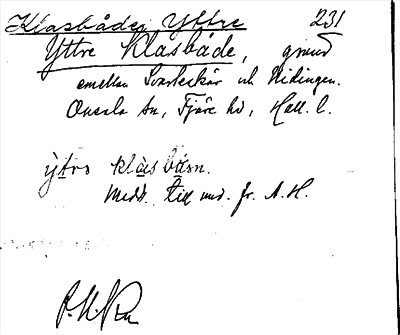 Klasbåden Yttre 231
Yttre Klasbåde, grund
emellan Svarteskär och Nidingen.
Onsala sn, Fjäre hd, Hall. l.
ỳtrə klàsbådn.
Medd. till und. fr. A. H.